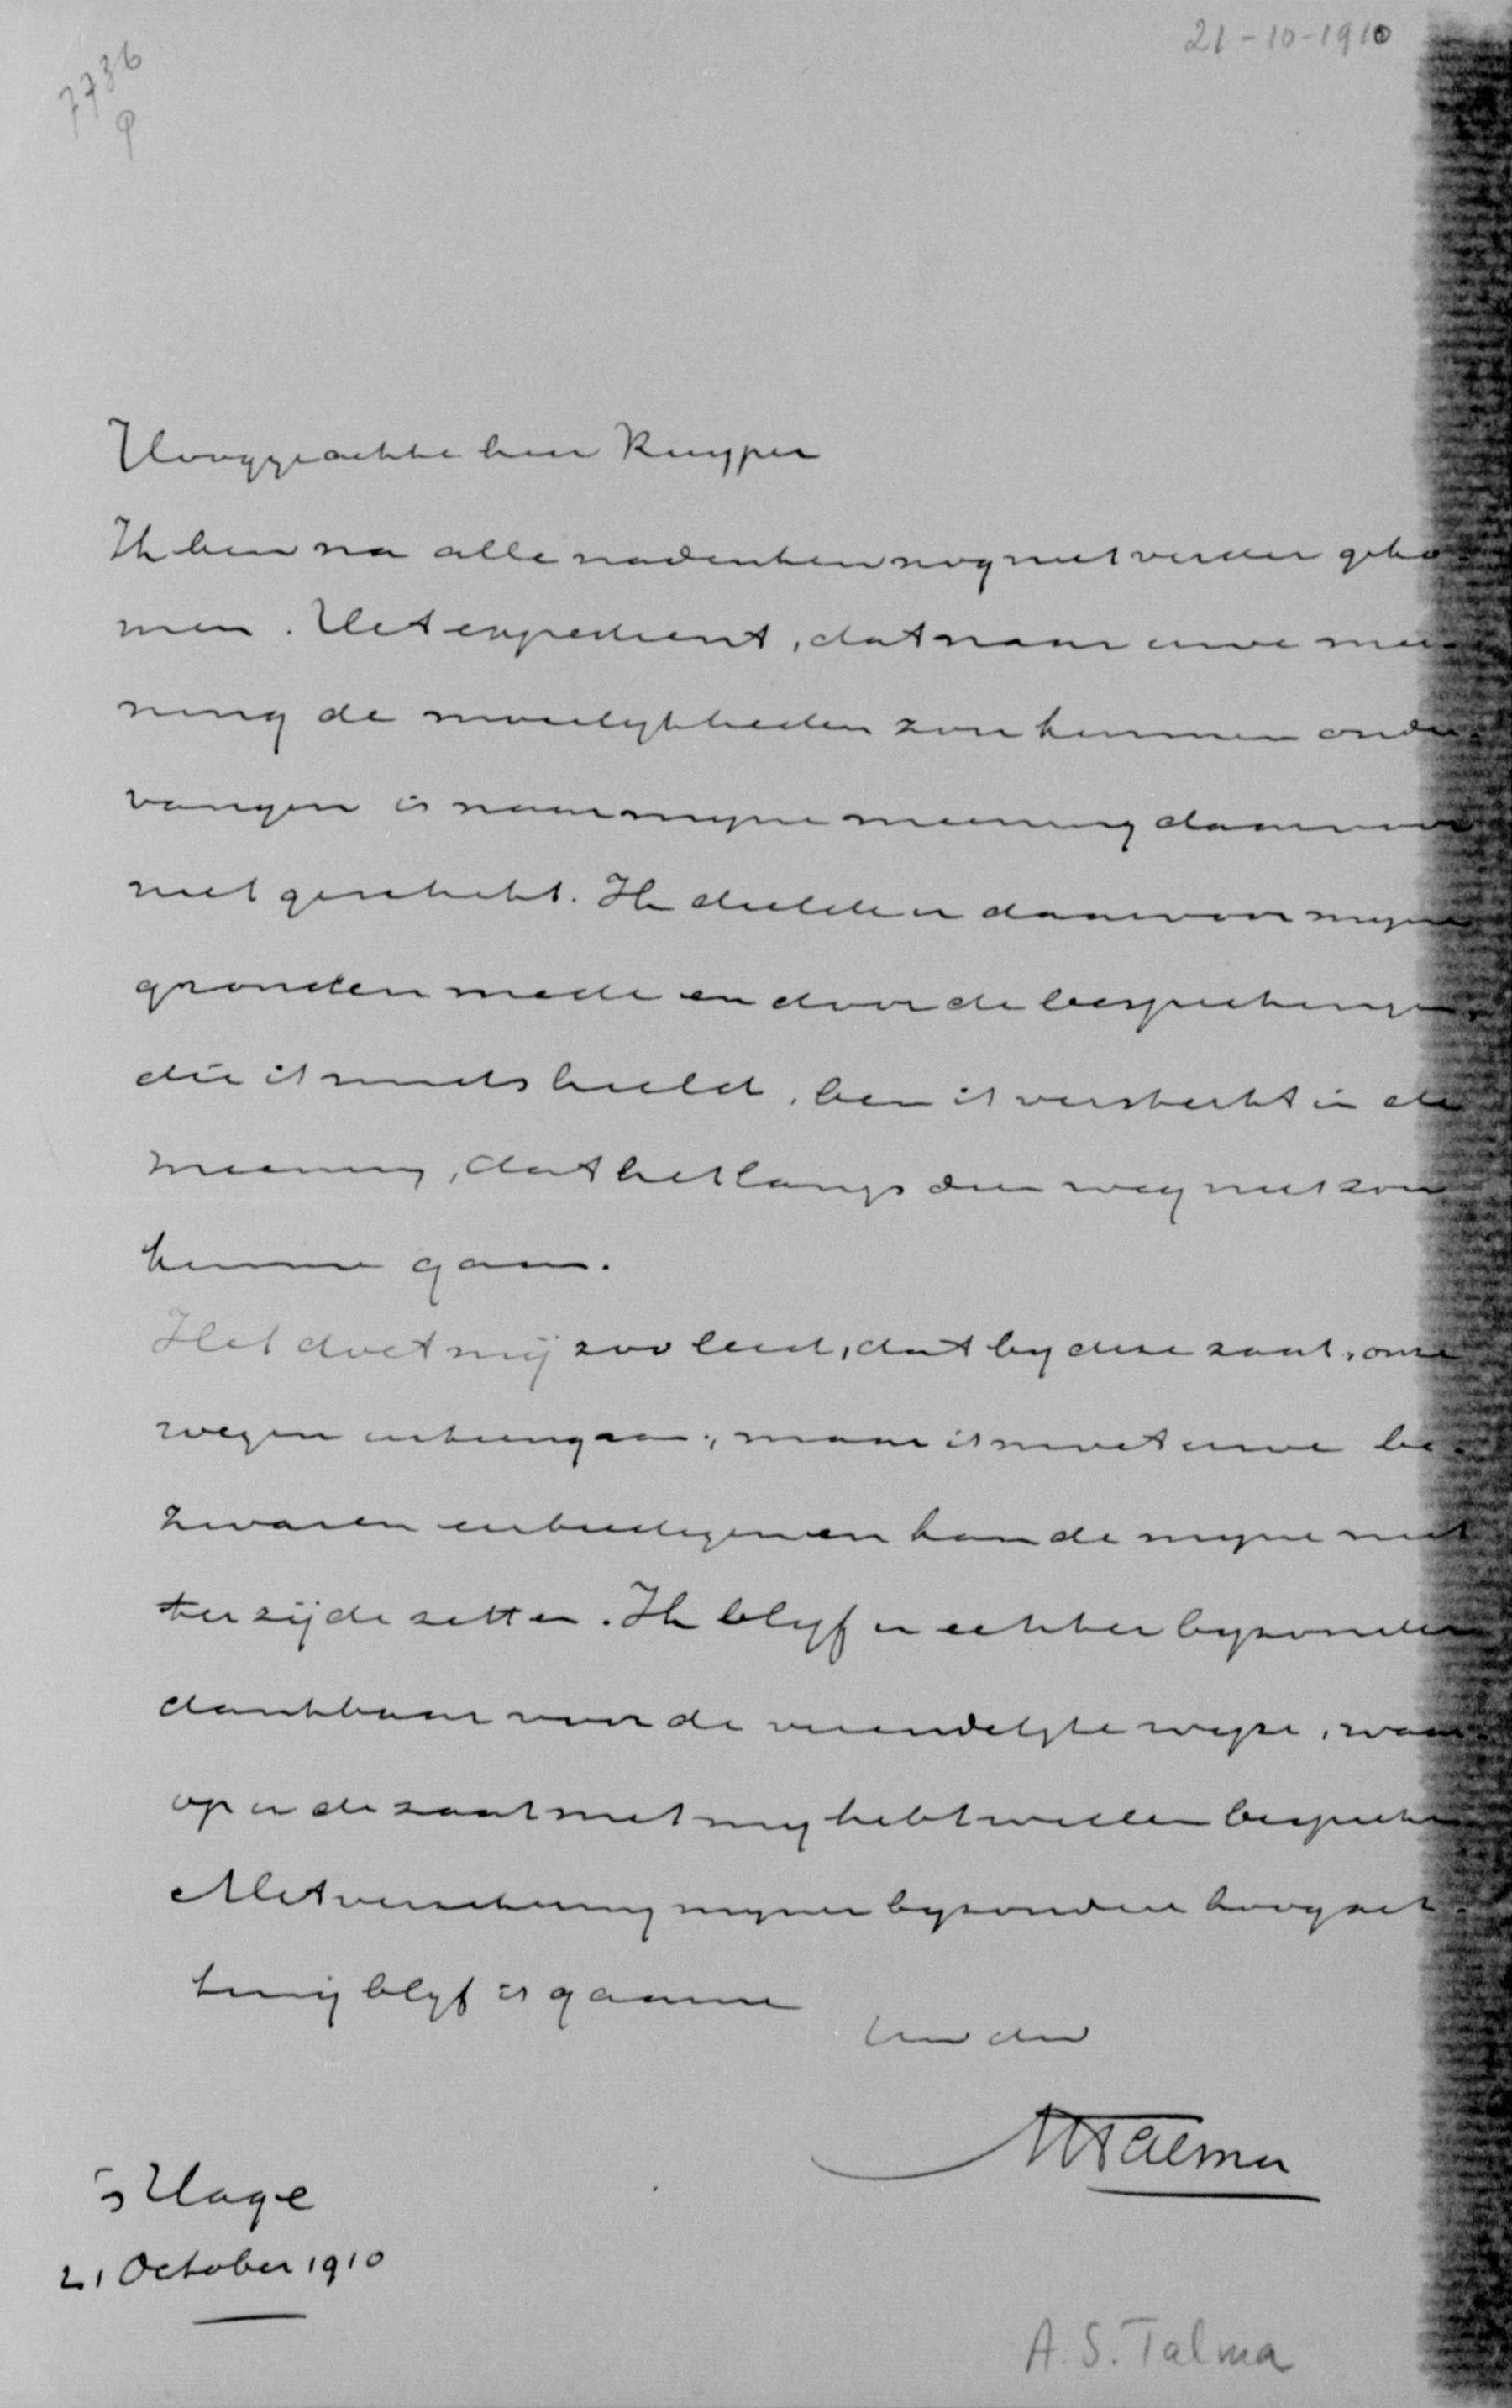 21-10-1910
7736
Hooggeachte heer Kuyper
Ik ben na alle nadenken nog niet verder geko-
men. Het expedient, dat naar uwe mee-
ning de moeilykheden zou kunnen onder-
vangen is naar myne meening daarvoor
niet geschikt. Ik deelde u daarvoor myne
gronden mede en door de besprekingen,
die ik sinds hield, ben ik versterkt in de
meening, dat het langs dien weg niet zou
kunnen gaan.
Het doet mij zoo leed, dat by deze zaak, onze
wegen uiteengaan; maar ik moet uwe be-
zwaren eerbiedigen en kan de myne niet
ter zijde zetten. Ik blyf u echter byzonder
dankbaar voor de vriendelyke wyze, waar-
op u de zaak met my hebt willen bespreken
Met verzekering myner byzondere hoogach-
ting blyf ik gaarne
Uw dw
AS Talma
's Hage
21 October 1910
A. S. Talma